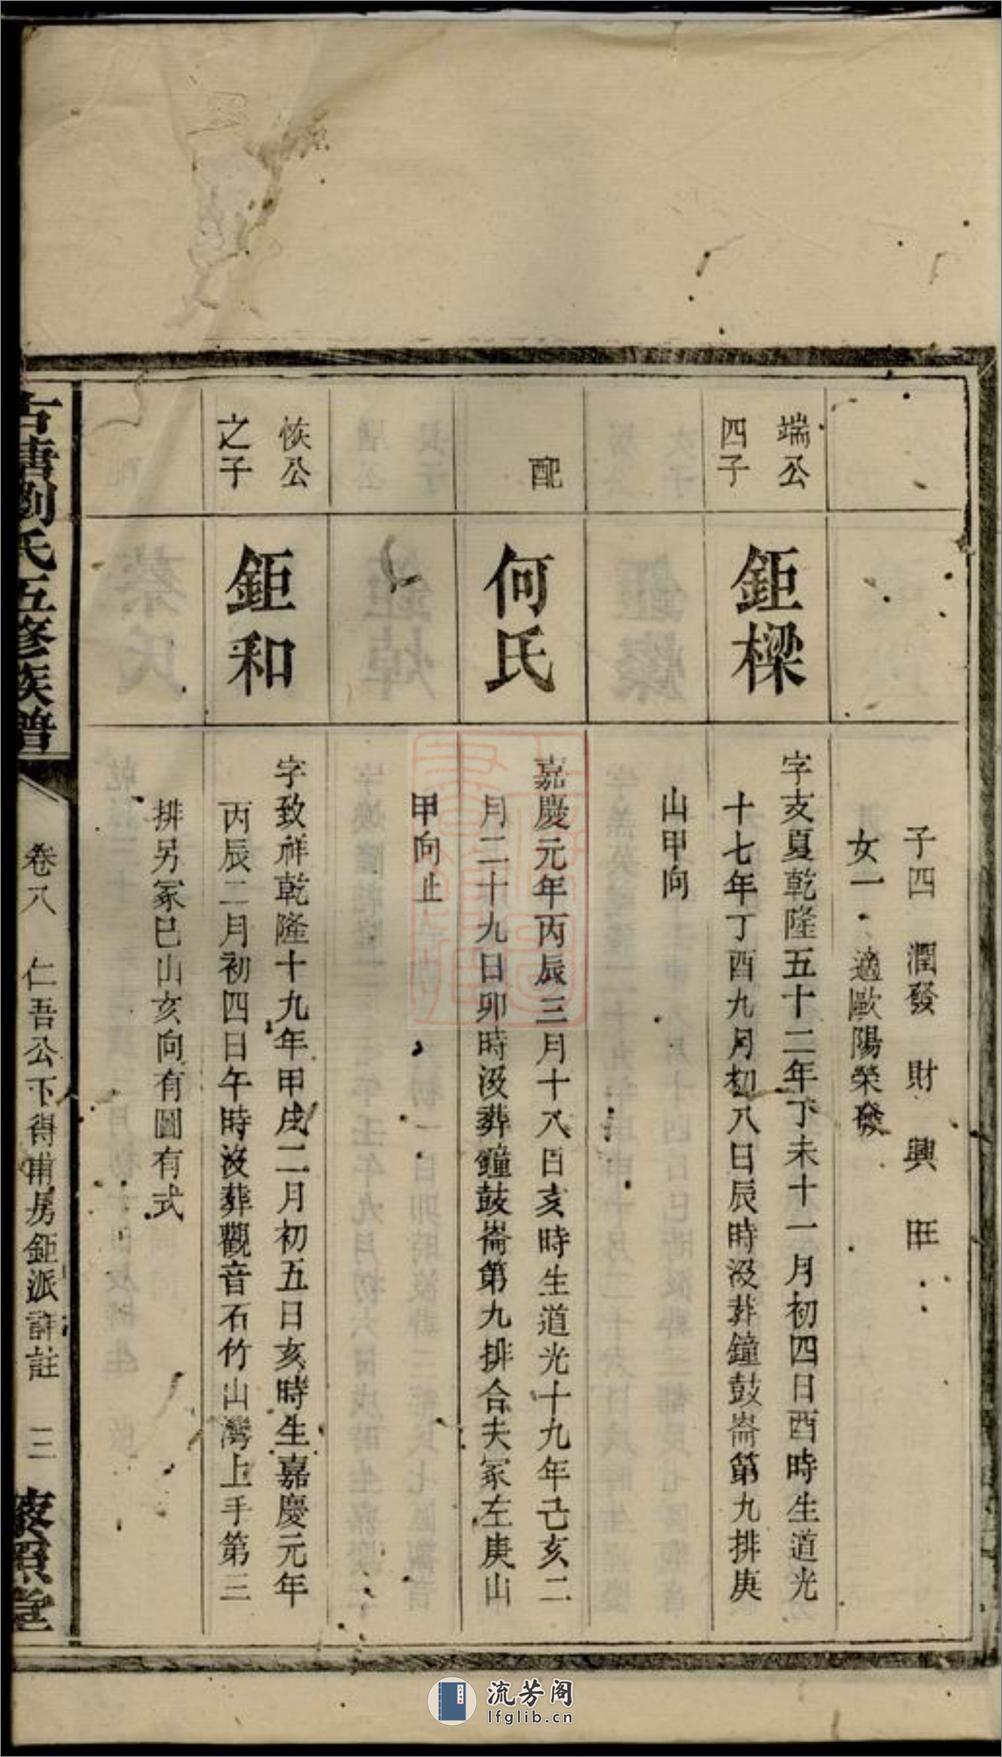 子四 潤發 財 興 旺
女一 適歐陽榮發
端公
四子
鉅樑
字支夏乾隆五十二年丁未十一月初四日酉時生道光
十七年丁酉九月初八日辰時沒葬鐘鼓崙第九排庚
山甲向
配
何氏
嘉慶元年丙辰三月十八日亥時生道光十九年己亥二
月二十九日卯時沒葬鐘鼓崙第九排合夫冢左庚山
甲向止
恢公
之子
鉅和
字致祥乾隆十九年甲戌二月初五日亥時生嘉慶元年
丙辰二月初四日午時沒葬觀音石竹山灣上手第三
排另冢巳山亥向有圖有式
古塘劉氏五修族譜
卷八 仁吾公下得甫房鉅派詳註 三
照堂
流芳阁
lfglib.cn